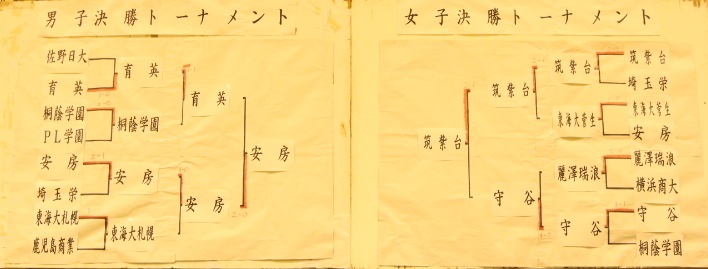 男子決勝トーナメント
佐野日大
育英
桐蔭学園
PL学園
安房
埼玉栄
東海大札幌
鹿児島商業
育英
桐蔭学園
安房
東海大札幌
育英
安房
安房
女子決勝トーナメント
筑紫台
筑紫台
守谷
筑紫台
東海大菅生
麗澤瑞浪
守谷
筑紫台
埼玉栄
東海大菅生
安房
麗澤瑞浪
横浜商大
守谷
桐蔭学園